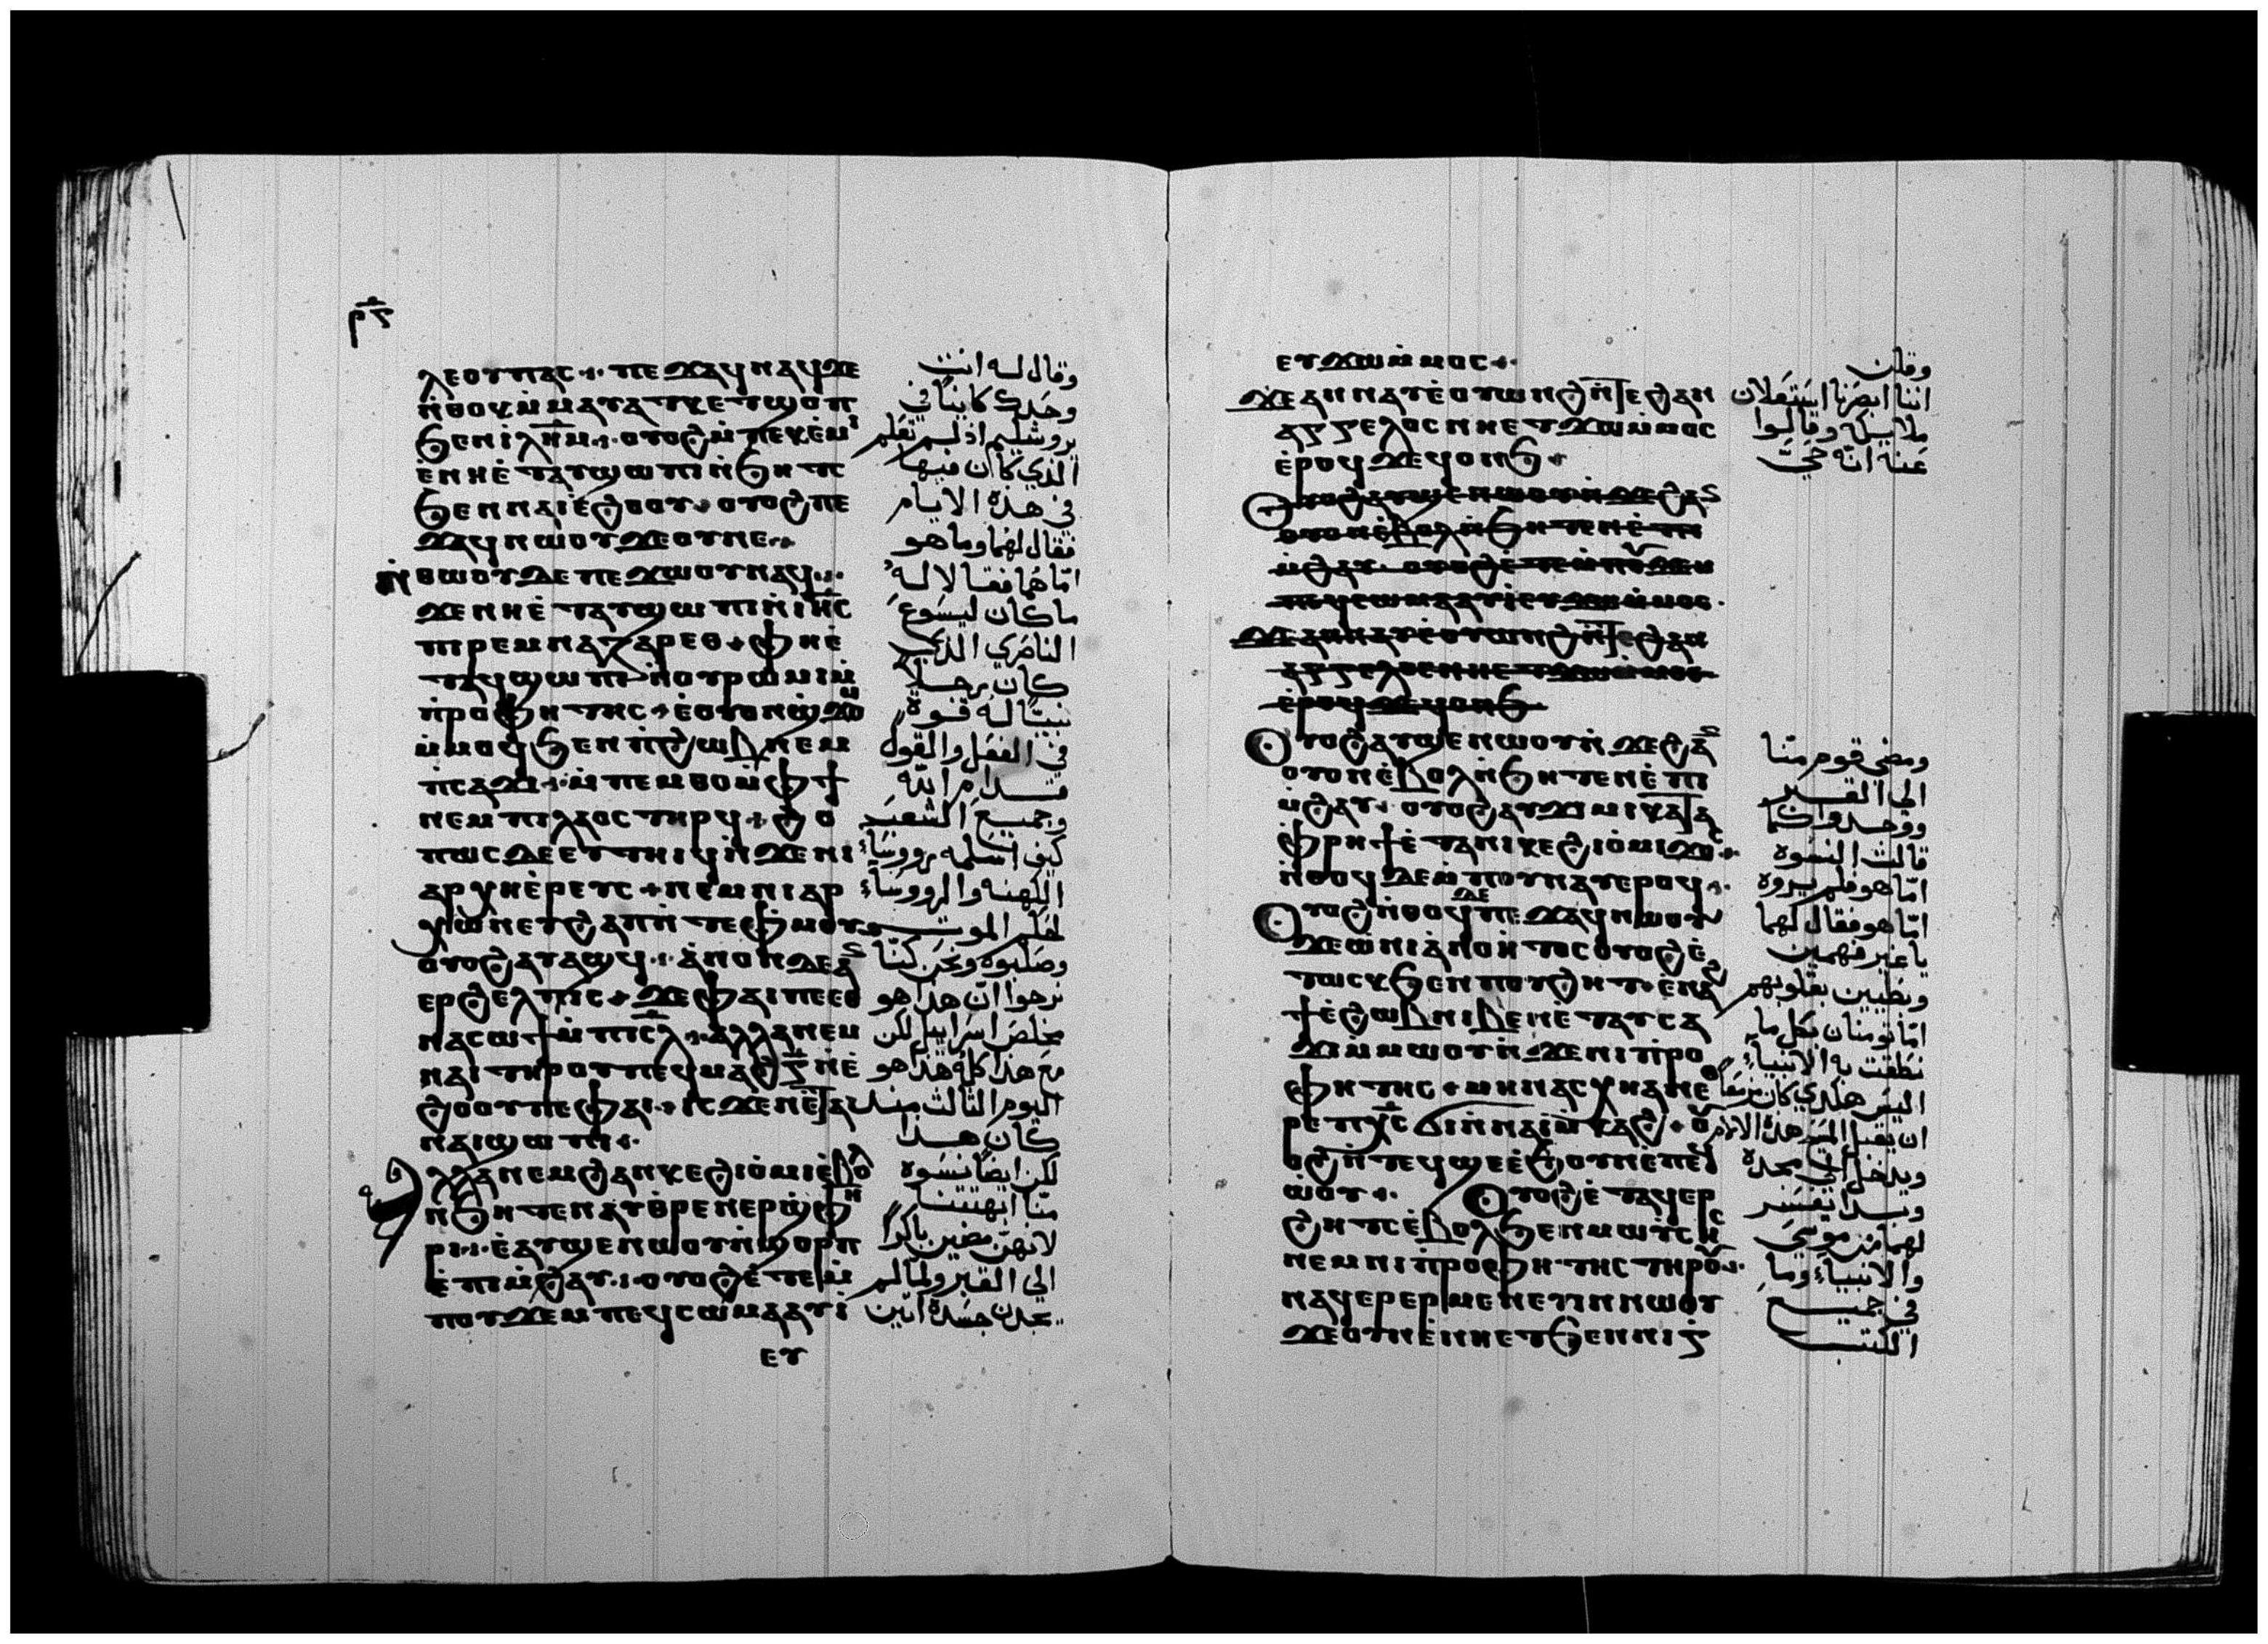 ⲣ̅ⲍ̅
ⲗⲉⲟⲡⲁⲥ ⲡⲉϫⲁϥ ⲛⲁϥ ϫⲉ
ⲛ̀ⲑⲟⲕ ⲙ̀ⲙⲁⲩⲁⲧⲕ ⲉⲧϣⲟⲡ
ϧⲉⲛ ⲓ̅ⲗ̅ⲏ̅ⲙ̅ ⲟⲩⲟϩ ⲙ̀ⲡⲉⲕⲉ̀ⲙⲓ
ⲉ̀ⲛⲏⲉ̀ⲧⲁⲩϣⲱⲡⲓ ⲛ̀ϧⲏⲧⲥ
ϧⲉⲛ ⲛⲁⲓⲉ̀ϩⲟⲟⲩ ⲟⲩⲟϩ ⲡⲉ
ϫⲁϥ ⲛⲱⲟⲩ ϫⲉ ⲟⲩ ⲛⲉ
ⲛ̀ⲑⲱⲟⲩ ⲇⲉ ⲡⲉϫⲱⲟⲩ ⲛⲁϥ
ϫⲉ ⲛⲏⲉ̀ⲧⲁⲩϣⲱⲡⲓ ⲛ̀ⲓⲏ̅ⲥ
ⲡⲓⲣⲉⲙⲛⲁⲍⲁⲣⲉⲑ ⲫⲏⲉ̀
ⲧⲁϥϣⲱⲡⲓ ⲛ̀ⲟⲩⲣⲱⲙⲓ ⲙ̀
ⲡ̀ⲣⲟⲫⲏⲧⲏⲥ ⲉ̀ⲟⲩⲟⲛϣϫⲟⲙ
ⲙ̀ⲙⲟϥ ϧⲉⲛ ⲡ̀ϩⲱⲃ ⲛⲉⲙ
ⲡ̀ⲥⲁϫⲓ ⲙ̀ⲡⲉⲙⲑⲟ ⲙ̀ⲫϯ
ⲛⲉⲙ ⲡⲓⲗⲁⲟⲥ ⲧⲏⲣϥ ϩⲟ
ⲡⲱⲥ ⲇⲉ ⲉⲩⲧⲏⲓϥ ⲛ̀ϫⲉ ⲛⲓ
ⲁⲣⲭⲏⲉ̀ⲣⲉⲩⲥ ⲛⲉⲙ ⲛⲓⲁⲣ
ⲭⲱⲛ ⲉⲩϩⲁⲡ ⲛ̀ⲧⲉ ⲫ̀ⲙⲟⲩ
ⲟⲩⲟϩ ⲁⲩⲁϣϥ ⲁ̀ⲛⲟⲛ ⲇⲉ ⲁⲛ
ⲉⲣϩⲉⲗⲡⲓⲥ ϫⲉ ⲫⲁⲓ ⲡⲉ ⲉⲑ
ⲛⲁⲥⲱϯ ⲙ̀ⲡⲓⲥ̅ⲗ̅ ⲁⲗⲗⲁ ⲛⲉⲙ
ⲛⲁⲓ ⲧⲏⲣⲟⲩ ⲡⲉϥⲙⲁϩⲅ̅ ⲛ̀ⲉ̀
ϩⲟⲟⲩ ⲡⲉ ⲫⲁⲓ ⲓⲥϫⲉⲛ ⲉ̀ⲧⲁ
ⲛⲁⲓ ϣⲱⲡⲓ
ⲁⲗⲗⲁ ⲛⲉⲙ ϩⲁⲛⲕⲉϩⲓⲟ̀ⲙⲓ ⲉ̀ⲃⲟⲗ
ⲛ̀ϧⲏⲧⲉⲛ ⲁⲩⲑ̀ⲣⲉⲛⲉⲣϣ̀ⲫⲏ
ⲣⲓ ⲉ̀ⲁⲩϣⲉⲛⲱⲟⲩ ⲛ̀ϣⲟⲣⲡ
ⲉ̀ⲡⲓⲙ̀ϩⲁⲩ ⲟⲩⲟϩ ⲉ̀ⲧⲉⲙ̀
ⲡⲟⲩϫⲉⲙ ⲡⲉϥⲥⲱⲙⲁ ⲁⲩⲓ̀
ⲉⲩ
وقال له انت
وحدك كاينا في
يروشليم اذ لم تعلم
الذي كان فيها
في هذه الايام
فقال لهما وما هو
اما هما فقالا له
ما كان ليسوع
الناصري الذي
كان رجلا
نبيا له قوة
في الفعل والقول
قدام الله
وجميع الشعب
كيف اسلمه رووساء
الكهنه والرووساء
لحكم الموت
وصلبوه ونحن كنا
نرجوا ان هذا هو
مخلص اسراييل لكن
مع هذا كله هذا هو
اليوم الثالث منذ
كان هذا
لكن ايضا نسوه
منا ابهتتنا
لانهن مضين باكرا
الي القبر ولما لم
يجدن جسده اتين
ⲉⲩϫⲱ ⲙ̀ⲙⲟⲥ
ϫⲉ ⲁⲛⲛⲁⲩ ⲉ̀ⲟⲩⲱⲛϩ ⲛ̀ⲧⲉ ϩⲁⲛ
ⲁⲅⲅⲉⲗⲟⲥ ⲛⲏⲉⲧϫⲱ ⲙ̀ⲙⲟⲥ
ⲉ̀ⲣⲟϥ ϫⲉ ϥⲟⲛϧ
ⲟⲩⲟϩ ⲁⲩϣⲉⲛⲱⲟⲩ ⲛ̀ϫⲉ ϩⲁⲛ
ⲟⲩⲟⲛ ⲉ̀ⲃⲟⲗ ⲛ̀ϧⲏⲧⲉⲛ ⲉ̀ⲡⲓ
ⲙ̀ϩⲁⲩ ⲟⲩⲟϩ ⲉ̀ⲧⲉⲙ̀ⲡⲟⲩϫⲉⲙ
ⲡⲉϥⲥⲱⲙⲁ ⲁⲩⲓ̀ ⲉⲩϫⲱ ⲙ̀ⲙⲟⲥ
ϫⲉ ⲁⲛⲛⲁⲩ ⲉ̀ⲟⲩⲱⲛϩ ⲛ̀ⲧⲉ ϩⲁⲛ
ⲁⲅⲅⲉⲗⲟⲥ ⲛⲏⲉⲧϫⲱ ⲙ̀ⲙⲟⲥ
ⲉ̀ⲣⲟϥ ϫⲉ ϥⲟⲛϧ
ⲟⲩⲟϩ ⲁⲩϣⲉⲛⲱⲟⲩ ⲛ̀ϫⲉ ϩⲁⲛ
ⲟⲩⲟⲛ ⲉ̀ⲃⲟⲗ ⲛ̀ϧⲏⲧⲉⲛ ⲉ̀ⲡⲓ
ⲙ̀ϩⲁⲩ ⲟⲩⲟϩ ⲁⲩϫⲓⲙⲓ ⲕⲁⲧⲁ
ⲫ̀ⲣⲏϯ ⲉ̀ⲧⲁ ⲛⲓⲕⲉϩⲓⲟ̀ⲙⲓ ϫⲟⲥ
ⲛ̀ⲑⲟϥ ⲇⲉ ⲙ̀ⲡⲟⲩⲛⲁⲩ ⲉⲣⲟϥ
ⲟⲩⲟϩ ⲛ̀ⲑⲟϥ ⲇⲉ ⲡⲉϫⲁϥ ⲛⲱⲟⲩ
ϫⲉ ⲱ ⲛⲓⲁ̀ⲛⲟⲏ̀ⲧⲟⲥ ⲟⲩⲟϩ ⲉ̀
ⲧⲱⲥⲕ ϧⲉⲛ ⲡⲟⲩϩⲏⲧ ⲉ̀ⲛⲁϩ
ϯ ⲉ̀ϩⲱⲃ ⲛⲓⲃⲉⲛ ⲉ̀ⲧⲁⲩⲥⲁ
ϫⲓ ⲙ̀ⲙⲱⲟⲩ ⲛ̀ϫⲉ ⲛⲓⲡ̀ⲣⲟ
ⲫⲏⲧⲏⲥ ⲙⲏ ⲛⲁⲥⲭⲏ ⲁⲛ ⲉⲑ
ⲣⲉ ⲡⲭ̅ⲥ̅ ϭⲓ ⲛ̀ⲛⲁⲓⲙ̀ⲕⲁϩ ⲟⲩ
ⲟϩ ⲛ̀ⲧⲉϥϣⲉ ⲉ̀ϧⲟⲩⲛ ⲉ̀ⲡⲉϥ
ⲱ̀ⲟⲩ ⲟⲩⲟϩ ⲉ̀ⲧⲁϥⲉⲣ
ϩⲏⲧⲥ ⲉ̀ⲃⲟⲗ ϧⲉⲛ ⲙⲱⲩ̀ⲥⲏⲥ
ⲛⲉⲙ ⲛⲓⲡ̀ⲣⲟⲫⲏⲧⲏⲥ ⲧⲏⲣⲟⲩ
ⲛⲁϥⲉⲣⲉⲣⲙⲉⲛⲉⲩⲓⲛ ⲛⲱⲟⲩ
ϫⲉ ⲟⲩ ⲛⲉ ⲛ̀ⲏⲉⲧϧⲉⲛ ⲛⲓⲅ
وقلن
اننا ابصرنا استعلان
ملايكة وقالوا
عنه انه حي
ومضي قوم منا
الي القبر
ووجدوا كما
قالت النسوه
اما هو فلم يروه
اما هو فقال لهما
يا غير فهمين
وبطيين بقلوبهم
اما تومنان بكل ما
نطقت به الانبياء
اليس هكذي كان مزمعا
ان يقبل المسيح هذه الالام
ويدخل الي مجده
وبدا يفسر
لهما من موسي
والانبياء وما
في جميع
الكتب